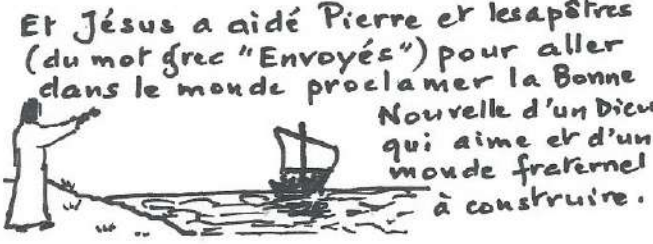 Et Jésus a aidé Pierre et lesapôtres
(du mot grec "Envoyés") pour aller
dans le monde proclamer la Bonne
Nouvelle d'un Dieu
qui aime et d'un
monde fraternel
à construire.